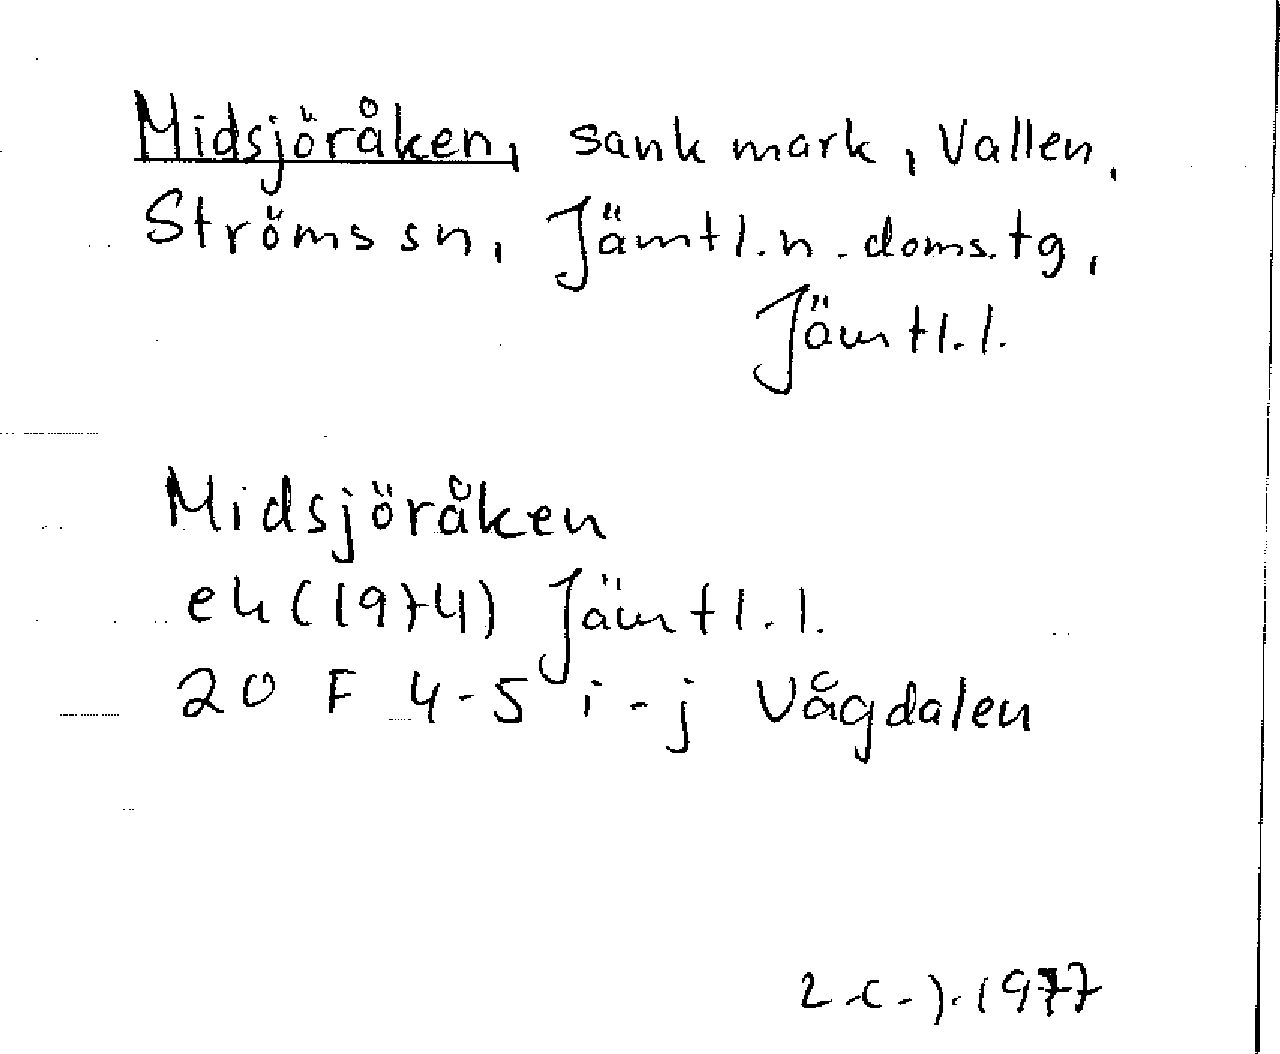 Midsjöråken, sank mark, Vallen,
Ströms sn, Jämtl.n.doms.tg,
Jämtl.l.
Midsjöråken
ek(1974) Jämtl.l.
20 F 4-5 i-j Vågdalen
1977